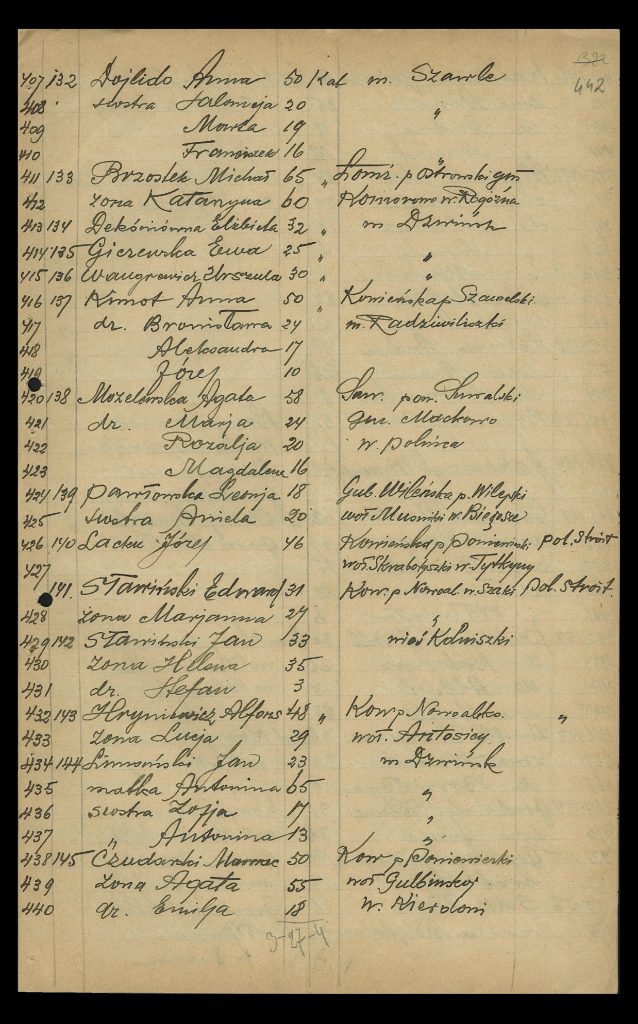 442
407 132 Dojlido Anna 50 Kat m. Szawle
408 siostra Salomeja 20 "
409 Marta 19
410 Franciszek 16
411 133 Brzostek Michał 65 " Łomż. p Ostrowski gm
412 żona Katarzyna 60 Komorowo w. Rogóźna
413 134 Elżbieta 32 " m Dźwińsk
414 135 Giczewska Ewa 25 " "
415 136 Urszula 30 " "
416 137 Anna 50 " Kowieńska p Szawelski
417 dr. Bronisława 24 m. Radziwiliszki
418 Aleksandra 17
419 Józef 10
420 138 Agata 58 Suw. pow. Suwalski
421 dr. Marja 24 gm. Maćkowo
422 Rozalja 20 w.
423 Magdalena 16
424 139 Pawłowska Leonja 18 Gub. Wileńska p. Wilejski
425 siostra Aniela 20 woł w.
426 140 Józef 46 Kowieńska p Poniewieski pol. stroit
427 woł. w.
141. Sławiński Edward 31 Kow. p Nowoal. w. Szaki pol. stroit.
428 żona Marjanna 27 "
429 142 Sławiński Jan 33 wieś
430 żona Helena 35
431 dr. Stefan 3
432 143 Hryniewicz Alfons 48 " Kow p. Nowoalek. "
433 żona Łucja 29 woł.
434 144 Jan 23 m Dźwińsk
435 matka Antonina 65 "
436 siostra Zofja 17 "
437 " Antonina 13 "
438 145 Czudarski 50 Kow p Poniewieski
439 żona Agata 55 woł
440 dr. Emilja 18 w.
3-27-4